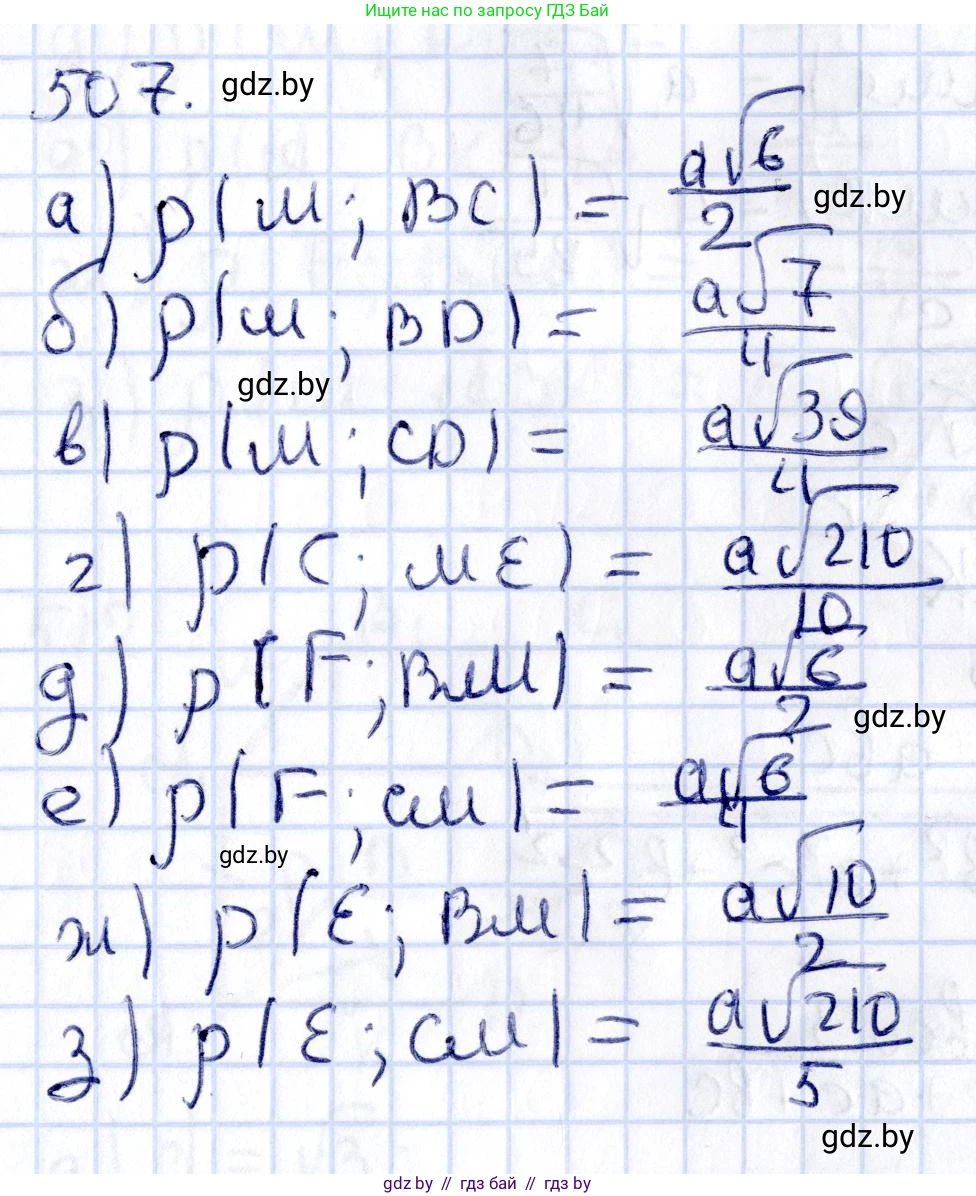 Ищите нас по запросу ГДЗ Бай
507. gdz.by
а) ρ(M; BC) = a√6/2 gdz.by
б) ρ(M; BD) = a√7/4
gdz.by
в) ρ(M; CD) = a√39/4
г) ρ(C; ME) = a√210/10
д) ρ(F; BM) = a√6/2 gdz.by
е) ρ(F; CM) = a√6/4
gdz.by
ж) ρ(E; BM) = a√10/2
з) ρ(E; CM) = a√210/5
gdz.by
gdz.by // гдз бай // gdz.by